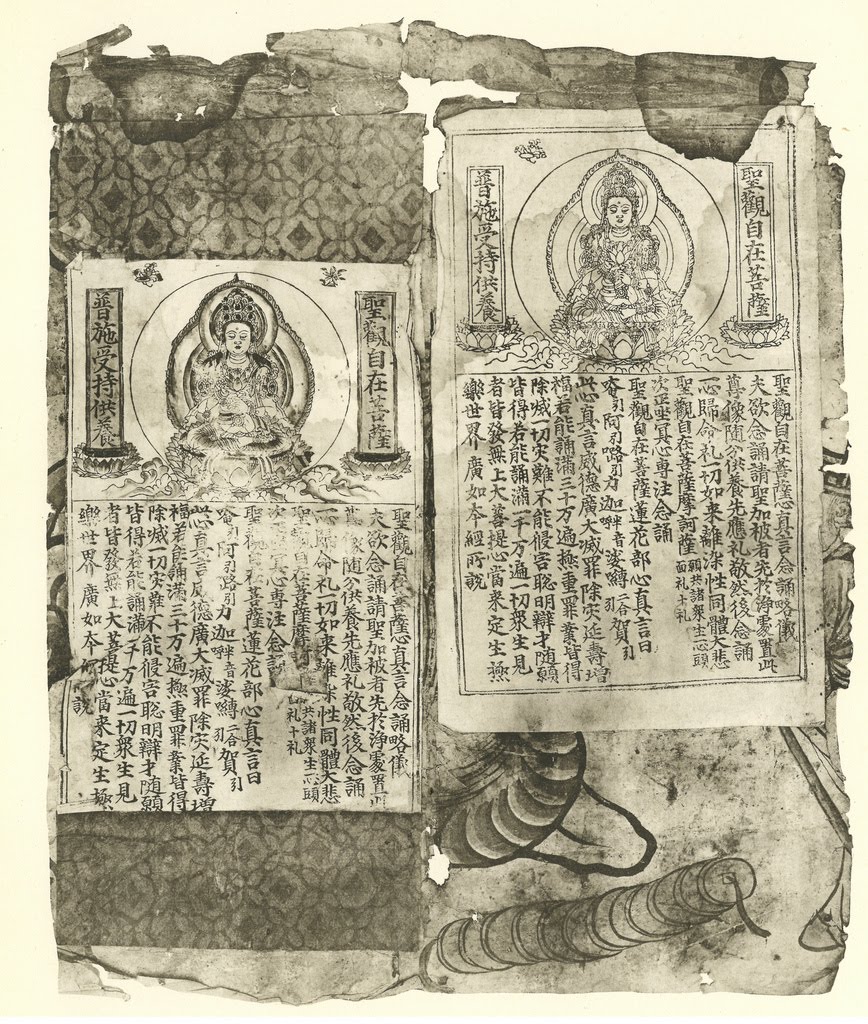 聖觀自在菩薩
普施受持供養
聖觀自在菩薩心真言念誦略儀
夫欲念誦請聖加被者先於淨處置此
尊像隨分供養先應礼敬然後念誦
心歸命礼一切如来離染性同體大悲
聖觀自在菩薩摩訶薩 願共諸衆生一心頭面礼十礼
次正坐冥心專注念誦
聖觀自在菩薩蓮花部心真言曰
唵引阿引路引力迦 音娑嚩二合賀引
此心真言威德廣大滅罪除灾延壽增
福若能誦滿三十万遍極重罪業皆得
除滅一切灾難不能侵害聡明辯才随願
皆得若能誦滿一千万遍一切衆生見
者皆發無上大菩提心當来定生極
樂世界廣如本經所說
聖觀自在菩薩
普施受持供養
聖觀自在菩薩心真言念誦略儀
夫欲念誦請聖加被者先於淨處置此
像隨分供養先應礼敬然後念誦
歸命礼一切如来離 性同體大悲
聖觀自在菩薩摩訶 共諸衆生一心頭 礼十礼
次 心專注念誦
聖觀自在菩薩蓮花部心真言曰
唵引阿引路引力迦 音娑嚩二合引賀引
此心真言威德廣大滅罪除灾延壽增
福若能誦滿三十万遍極重罪業皆得
除滅一切灾難不能侵害聡明辯才随願
皆得若能誦滿一千万遍一切衆生見
者皆發無上大菩提心當来定生極
樂世界廣如本 說